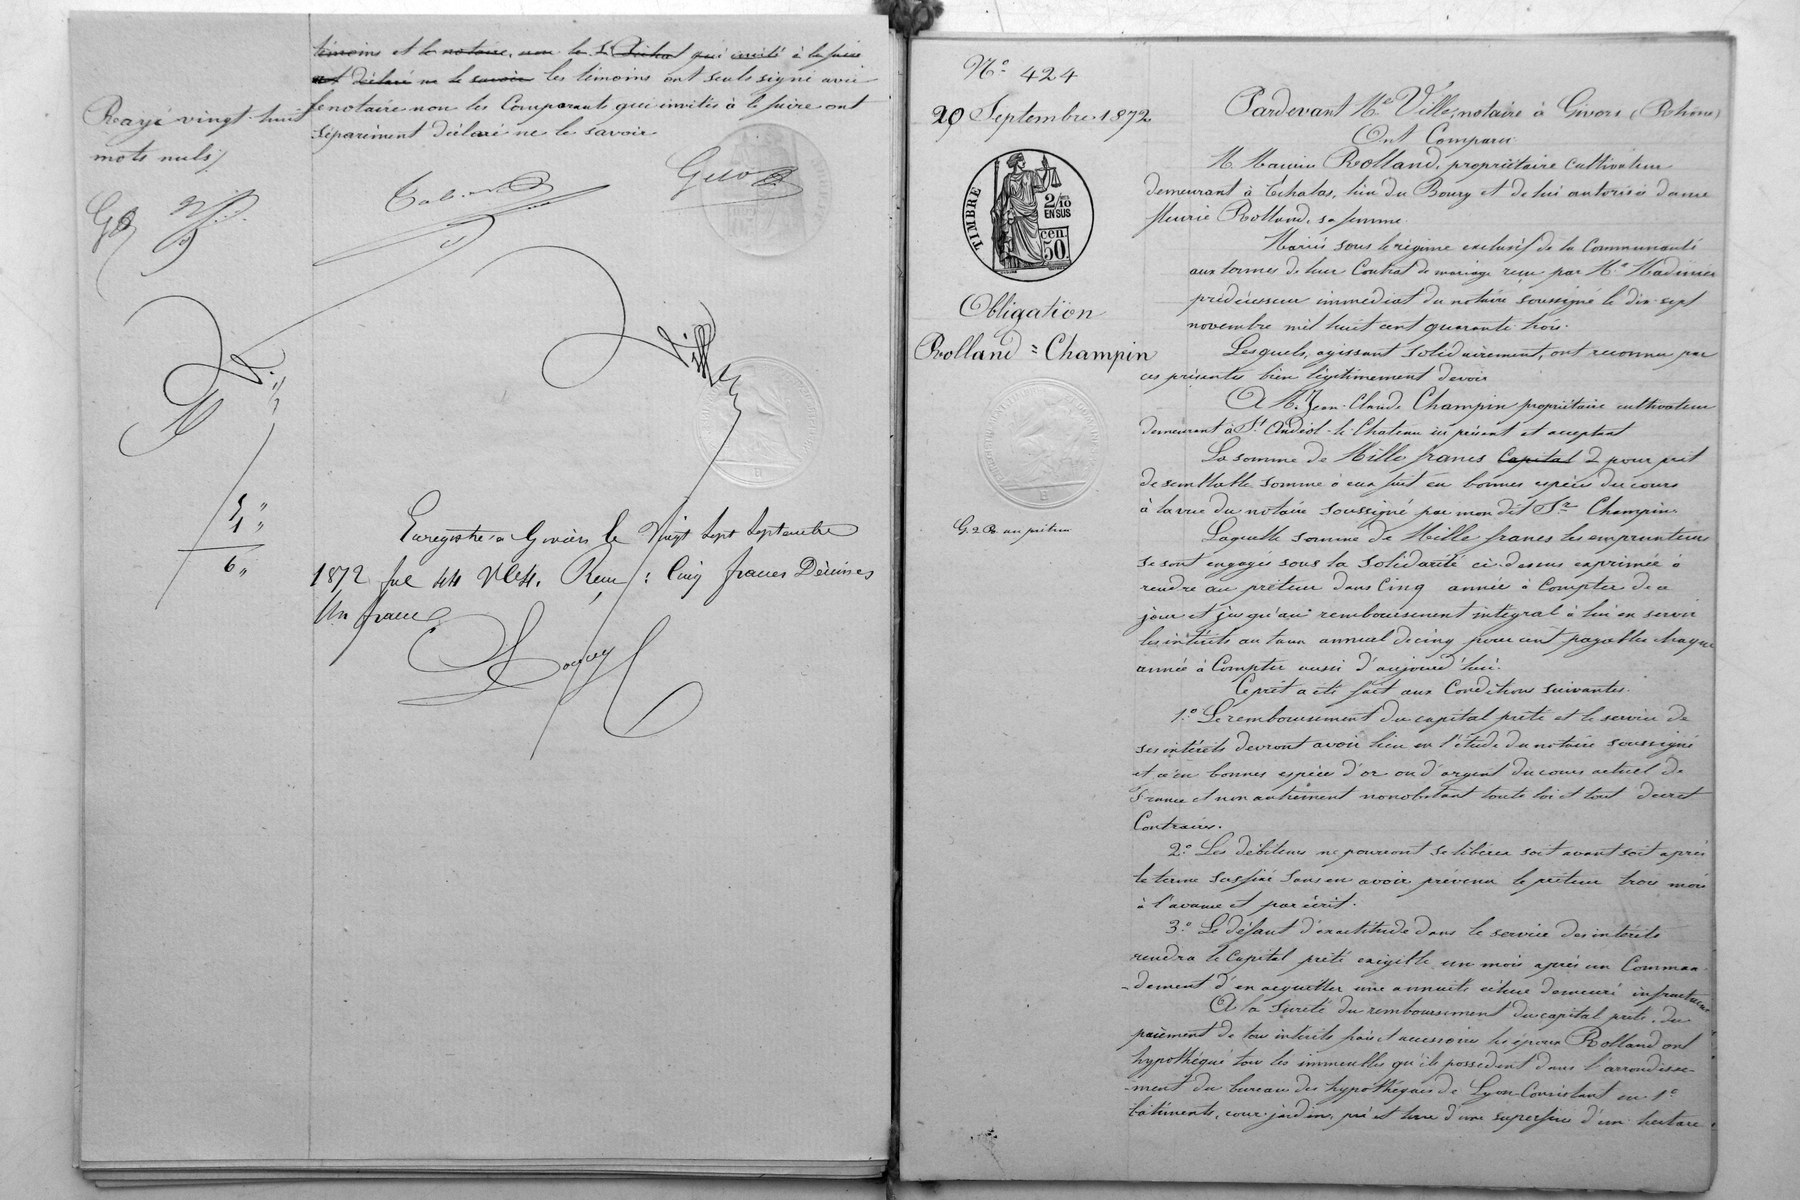 témoins et le notaire, non le S. Pichat qui invité à le faire
a déclaré ne le savoir les témoins ont seuls signé avec
le notaire non les Comparants qui invités à le faire ont
séparément déclaré ne le savoir
Rayé vingt-huit
mots nuls
Ville
5 "
1 "
6 "
Enregistré à Givors le Vingt sept Septembre
1872 fol. 44 V. C. 4. Reçu : Cinq francs Décimes
Un franc
N.o 424
20 Septembre 1872
TIMBRE
2/10
EN SUS
cen.
50.
Obligation
Rolland = Champin
G. 2 R. au prêteur
Pardevant Me Ville, notaire à Givors (Rhône)
Ont Comparu
M. Rolland, propriétaire cultivateur
demeurant à Echalas, lieu du Bourg et de lui autorisée dame
fleurie Rolland, sa femme
Mariés sous le régime exclusif de la Communauté
aux termes de leur Contrat de mariage reçu par Me Madinier
prédécesseur immédiat du notaire soussigné le dix-sept
novembre mil huit cent quarante trois.
Lesquels, agissant solidairement, ont reconnu par
ces présentes bien légitimement devoir
A M. Jean-Claude Champin propriétaire cultivateur
demeurant à St Andéol-le-Chateau ici présent et acceptant
La somme de Mille francs Capital pour prêt
de semblable somme à eux fait en bonnes espèces du cours
à la vue du notaire soussigné par mon dit Sr Champin
Laquelle somme de Mille francs les emprunteurs
se sont engagés sous la solidarité ci-dessus exprimée à
rendre au prêteur dans Cinq année à Compter de ce
jour et jusqu'au remboursement intégral à lui en servir
les intérêts au taux annuel de cinq pour cent payables chaque
année à Compter aussi d'aujourd'hui.
Ce prêt a été fait aux Conditions suivantes.
1.o Le remboursement du capital prêté et le service de
ses intérêts devront avoir lieu en l'étude du notaire soussigné
et ce en bonnes espèces d'or ou d'argent du cours actuel de
France et non autrement nonobstant toute loi et tout décret
Contraires.
2.o Les débiteurs ne pourront se libérer soit avant soit après
le terme susfixé sans en avoir prévenu le prêteur trois mois
à l'avance et par écrit.
3.o Le défaut d'exactitude dans le service des intérêts
rendra le Capital prêté exigible un mois après un Comman-
-dement d'en acquitter une annuité échue demeuré infructueux
A la sureté du remboursement du capital prêté, du
paiement de tous intérêts frais et accessoires les époux Rolland ont
hypothéqué tous les immeubles qu'ils possèdent dans l'arrondisse-
-ment du bureau des hypothèques de Lyon Consistant en 1.o
bâtiments, cour, jardin, pré et terre d'une superficie d'un hectare